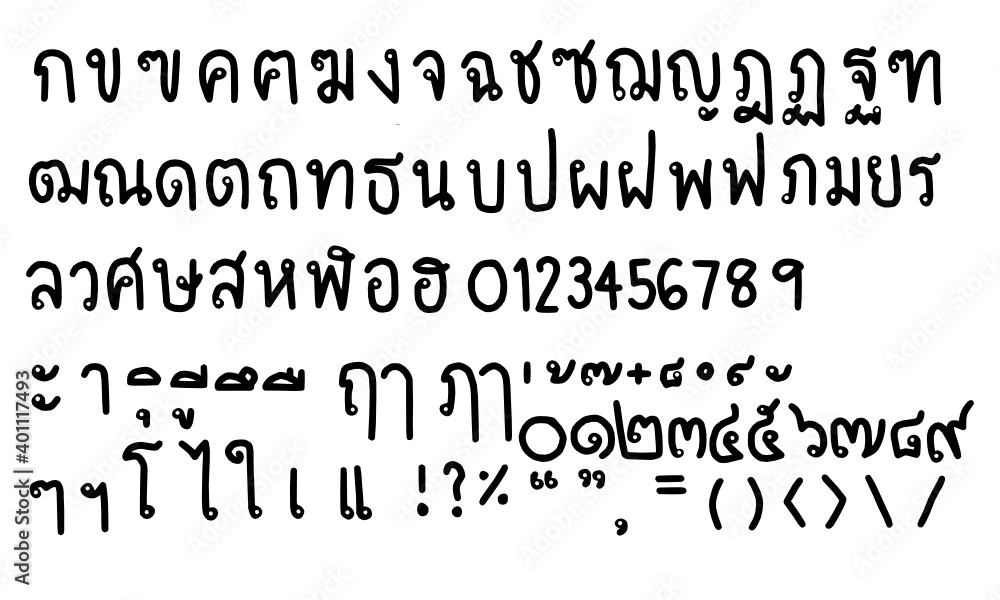 กขฃคฅฆงจฉชซฌญฎฏฐฑ
ฒณดตถทธนบปผฝพฟภมยร
ลวศษสหฬอฮ 0123456789
ะ า ิ ี ึ ื ฤๅ ฦๅ ่ ้ ๊ ๋ ็ ํ ์ ั
ุ ู ๐๑๒๓๔๕๖๗๘๙
ๆ ฯ โ ไ ใ เ แ ! ? % “ ” , = ( ) < > \ /
Adobe Stock | #401117493